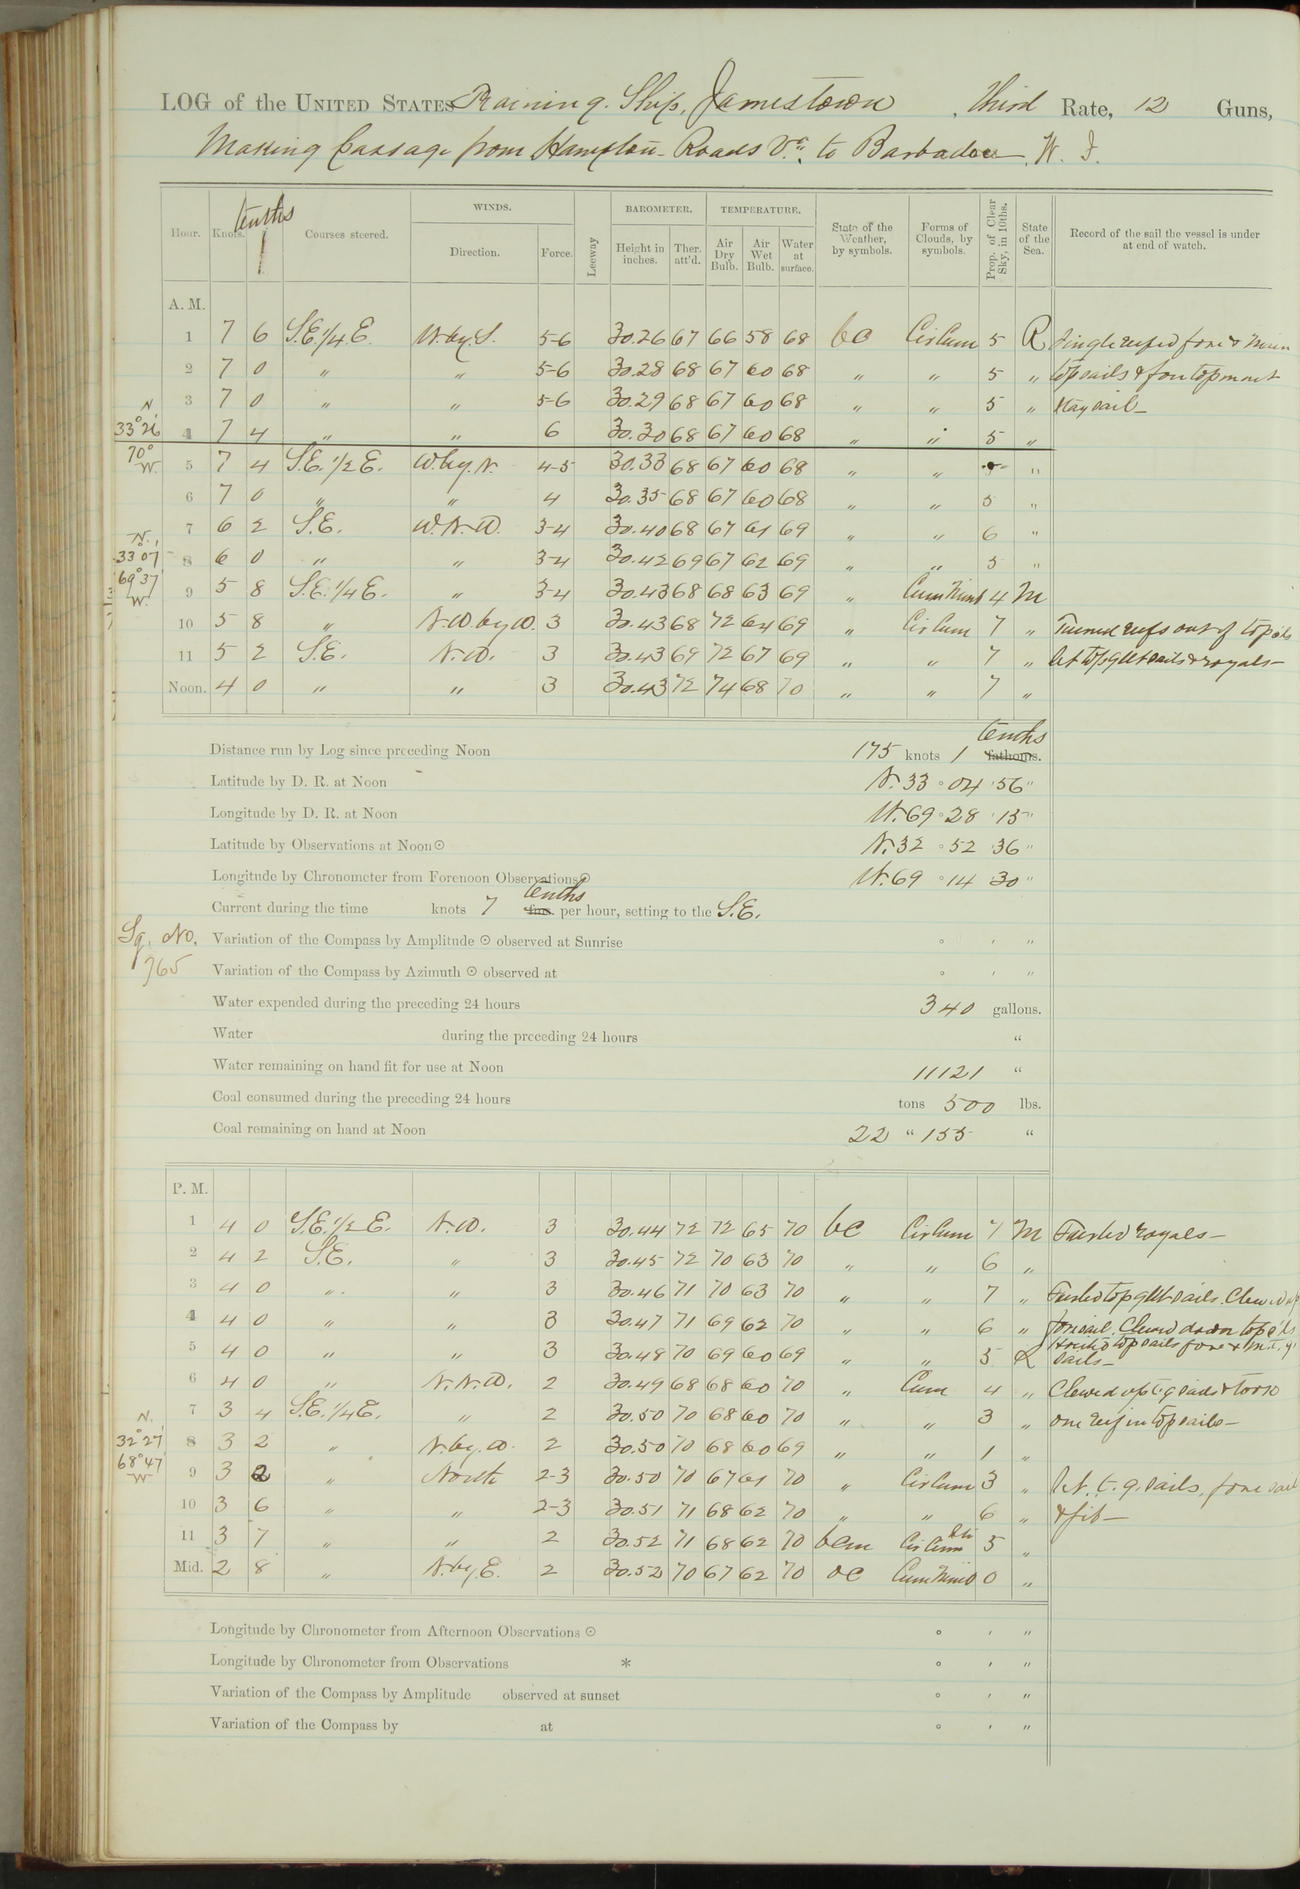 LOG of the UNITED STATES Training Ship, Jamestown, Third Rate, 12 Guns,
Making Passage from Hampton Roads Va. to Barbadoes, W. I.
tenths
WINDS. BAROMETER. TEMPERATURE.
Hour. Knots. Courses steered. Direction. Force. Leeway Height in inches. Ther. att'd. Air Dry Bulb. Air Wet Bulb. Water at surface. State of the Weather, by symbols. Forms of Clouds, by symbols. Prop. of Clear Sky, in 10ths. State of the Sea. Record of the sail the vessel is under at end of watch.
A. M.
1 7 6 S.E. 1/4 E. W. by S. 5-6 30.26 67 66 58 68 bc Cir Cum 5 R Single reefed fore & main
2 7 0 " " 5-6 30.28 68 67 60 68 " " 5 " topsails & fore topmast
3 7 0 " " 5-6 30.29 68 67 60 68 " " 5 " staysail—
N.
33° 26'
4 7 4 " " 6 30.30 68 67 60 68 " " 5 "
70°
W.
5 7 4 S.E. 1/2 E. W. by N. 4-5 30.33 68 67 60 68 " " "
6 7 0 " " 4 30.35 68 67 60 68 " " 5 "
7 6 2 S.E. W.N.W. 3-4 30.40 68 67 61 69 " " 6 "
N.
33° 07'
8 6 0 " " 3-4 30.42 69 67 62 69 " " 5 "
69° 37'
W.
9 5 8 S.E. 1/4 E. " 3-4 30.43 68 68 63 69 " Cum Nimb 4 M
10 5 8 " N.W. by W. 3 30.43 68 72 64 69 " Cir Cum 7 " Turned reefs out of topsls
11 5 2 S.E. N.W. 3 30.43 69 72 67 69 " " 7 " Set topgllt sails & royals—
Noon. 4 0 " " 3 30.43 72 74 68 70 " " 7 "
Distance run by Log since preceding Noon 175 knots 1 tenths fathoms.
Latitude by D. R. at Noon N. 33 ° 04 ' 56 "
Longitude by D. R. at Noon W. 69 ° 28 ' 15 "
Latitude by Observations at Noon ☉ N. 32 ° 52 ' 36 "
Longitude by Chronometer from Forenoon Observations ☉ W. 69 ° 14 ' 30 "
Current during the time knots 7 tenths fms. per hour, setting to the S.E.
Variation of the Compass by Amplitude ☉ observed at Sunrise ° ' "
Sq. No.
765
Variation of the Compass by Azimuth ☉ observed at ° ' "
Water expended during the preceding 24 hours 340 gallons.
Water during the preceding 24 hours "
Water remaining on hand fit for use at Noon 11121 "
Coal consumed during the preceding 24 hours tons 500 lbs.
Coal remaining on hand at Noon 22 " 155 "
P. M.
1 4 0 S.E. 1/2 E. N.W. 3 30.44 72 72 65 70 bc Cir Cum 7 M Furled royals—
2 4 2 S.E. " 3 30.45 72 70 63 70 " " 6 "
3 4 0 " " 3 30.46 71 70 63 70 " " 7 " Furled topgllt sails. Clewed up
4 4 0 " " 3 30.47 71 69 62 70 " " 6 " foresail. Clewed down topsls
5 4 0 " " 3 30.48 70 69 60 69 " " 5 R Hoisted topsails fore & m.t.g. sails—
6 4 0 " N.N.W. 2 30.49 68 68 60 70 " Cum 4 " Clewed up t.g. sails & took
7 3 4 S.E. 1/4 E. " 2 30.50 70 68 60 70 " " 3 " one reef in topsails—
N.
32° 27'
8 3 2 " N. by W. 2 30.50 70 68 60 69 " " 1 "
68° 47'
W
9 3 2 " North 2-3 30.50 70 67 61 70 " Cir Cum 3 " Set t.g. sails, fore sail
10 3 6 " " 2-3 30.51 71 68 62 70 " " 6 " & jib—
11 3 7 " " 2 30.52 71 68 62 70 bcm Cir Cum 5 "
Mid. 2 8 " N. by E. 2 30.52 70 67 62 70 oc Cum Nimb 0 "
Longitude by Chronometer from Afternoon Observations ☉ ° ' "
Longitude by Chronometer from Observations * ° ' "
Variation of the Compass by Amplitude observed at sunset ° ' "
Variation of the Compass by at ° ' "